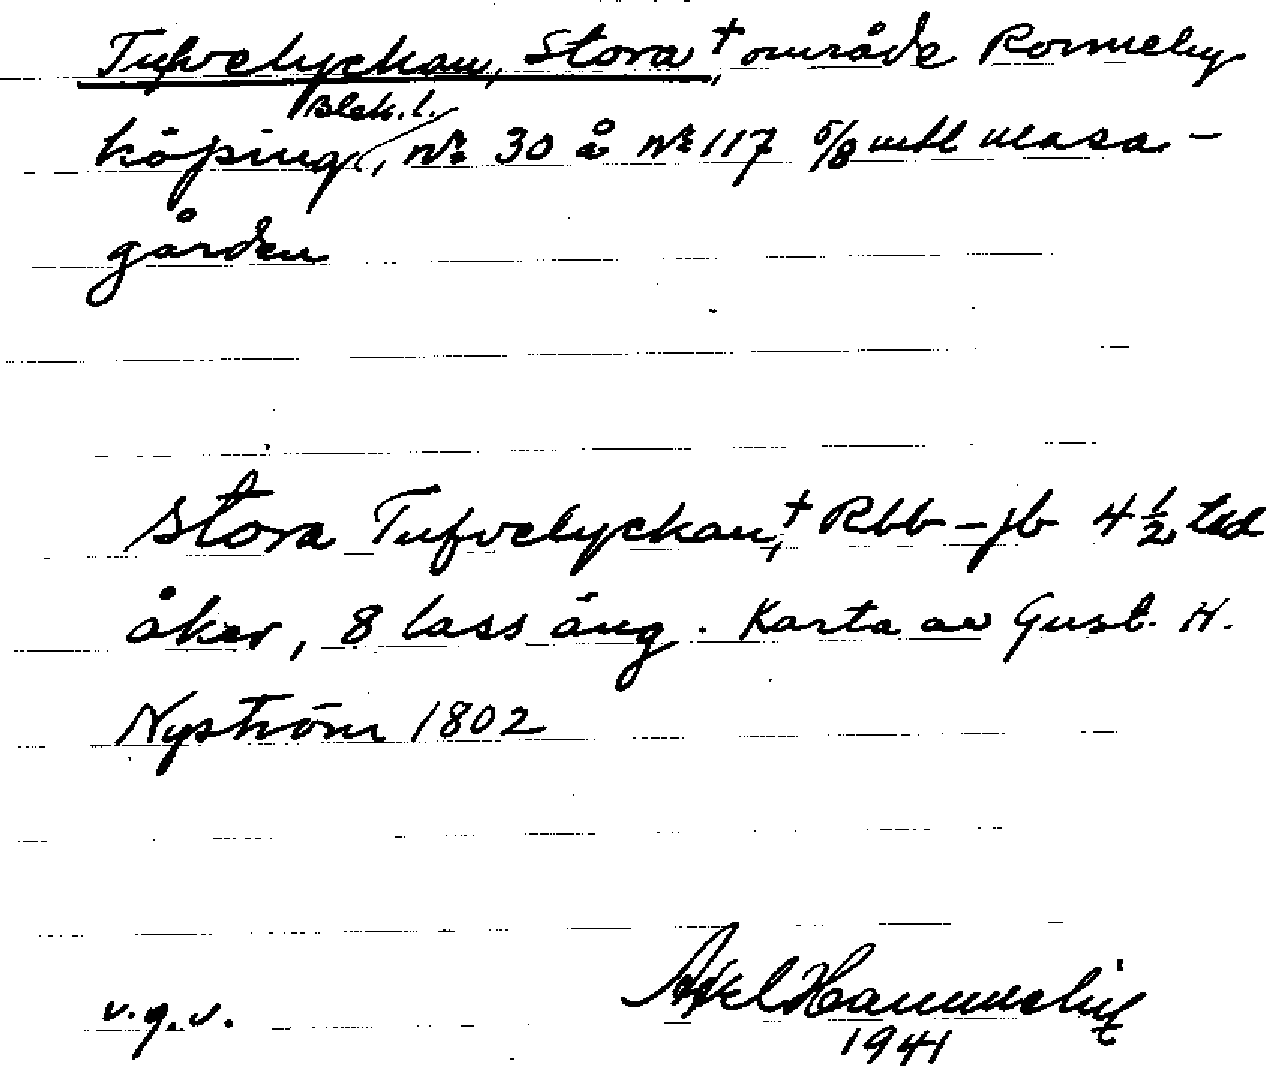 Tufvelyckan, Stora †, område Ronneby
Blek. l.
köping, N:o 30 å N:o 117 5/8 mtl Masa-
gården
Stora Tufvelyckan †, Rbb – jb 4 1/2 tld
åker, 8 lass äng. Karta av Gust. N.
Nyström 1802
v.g.v.
Axel
1941